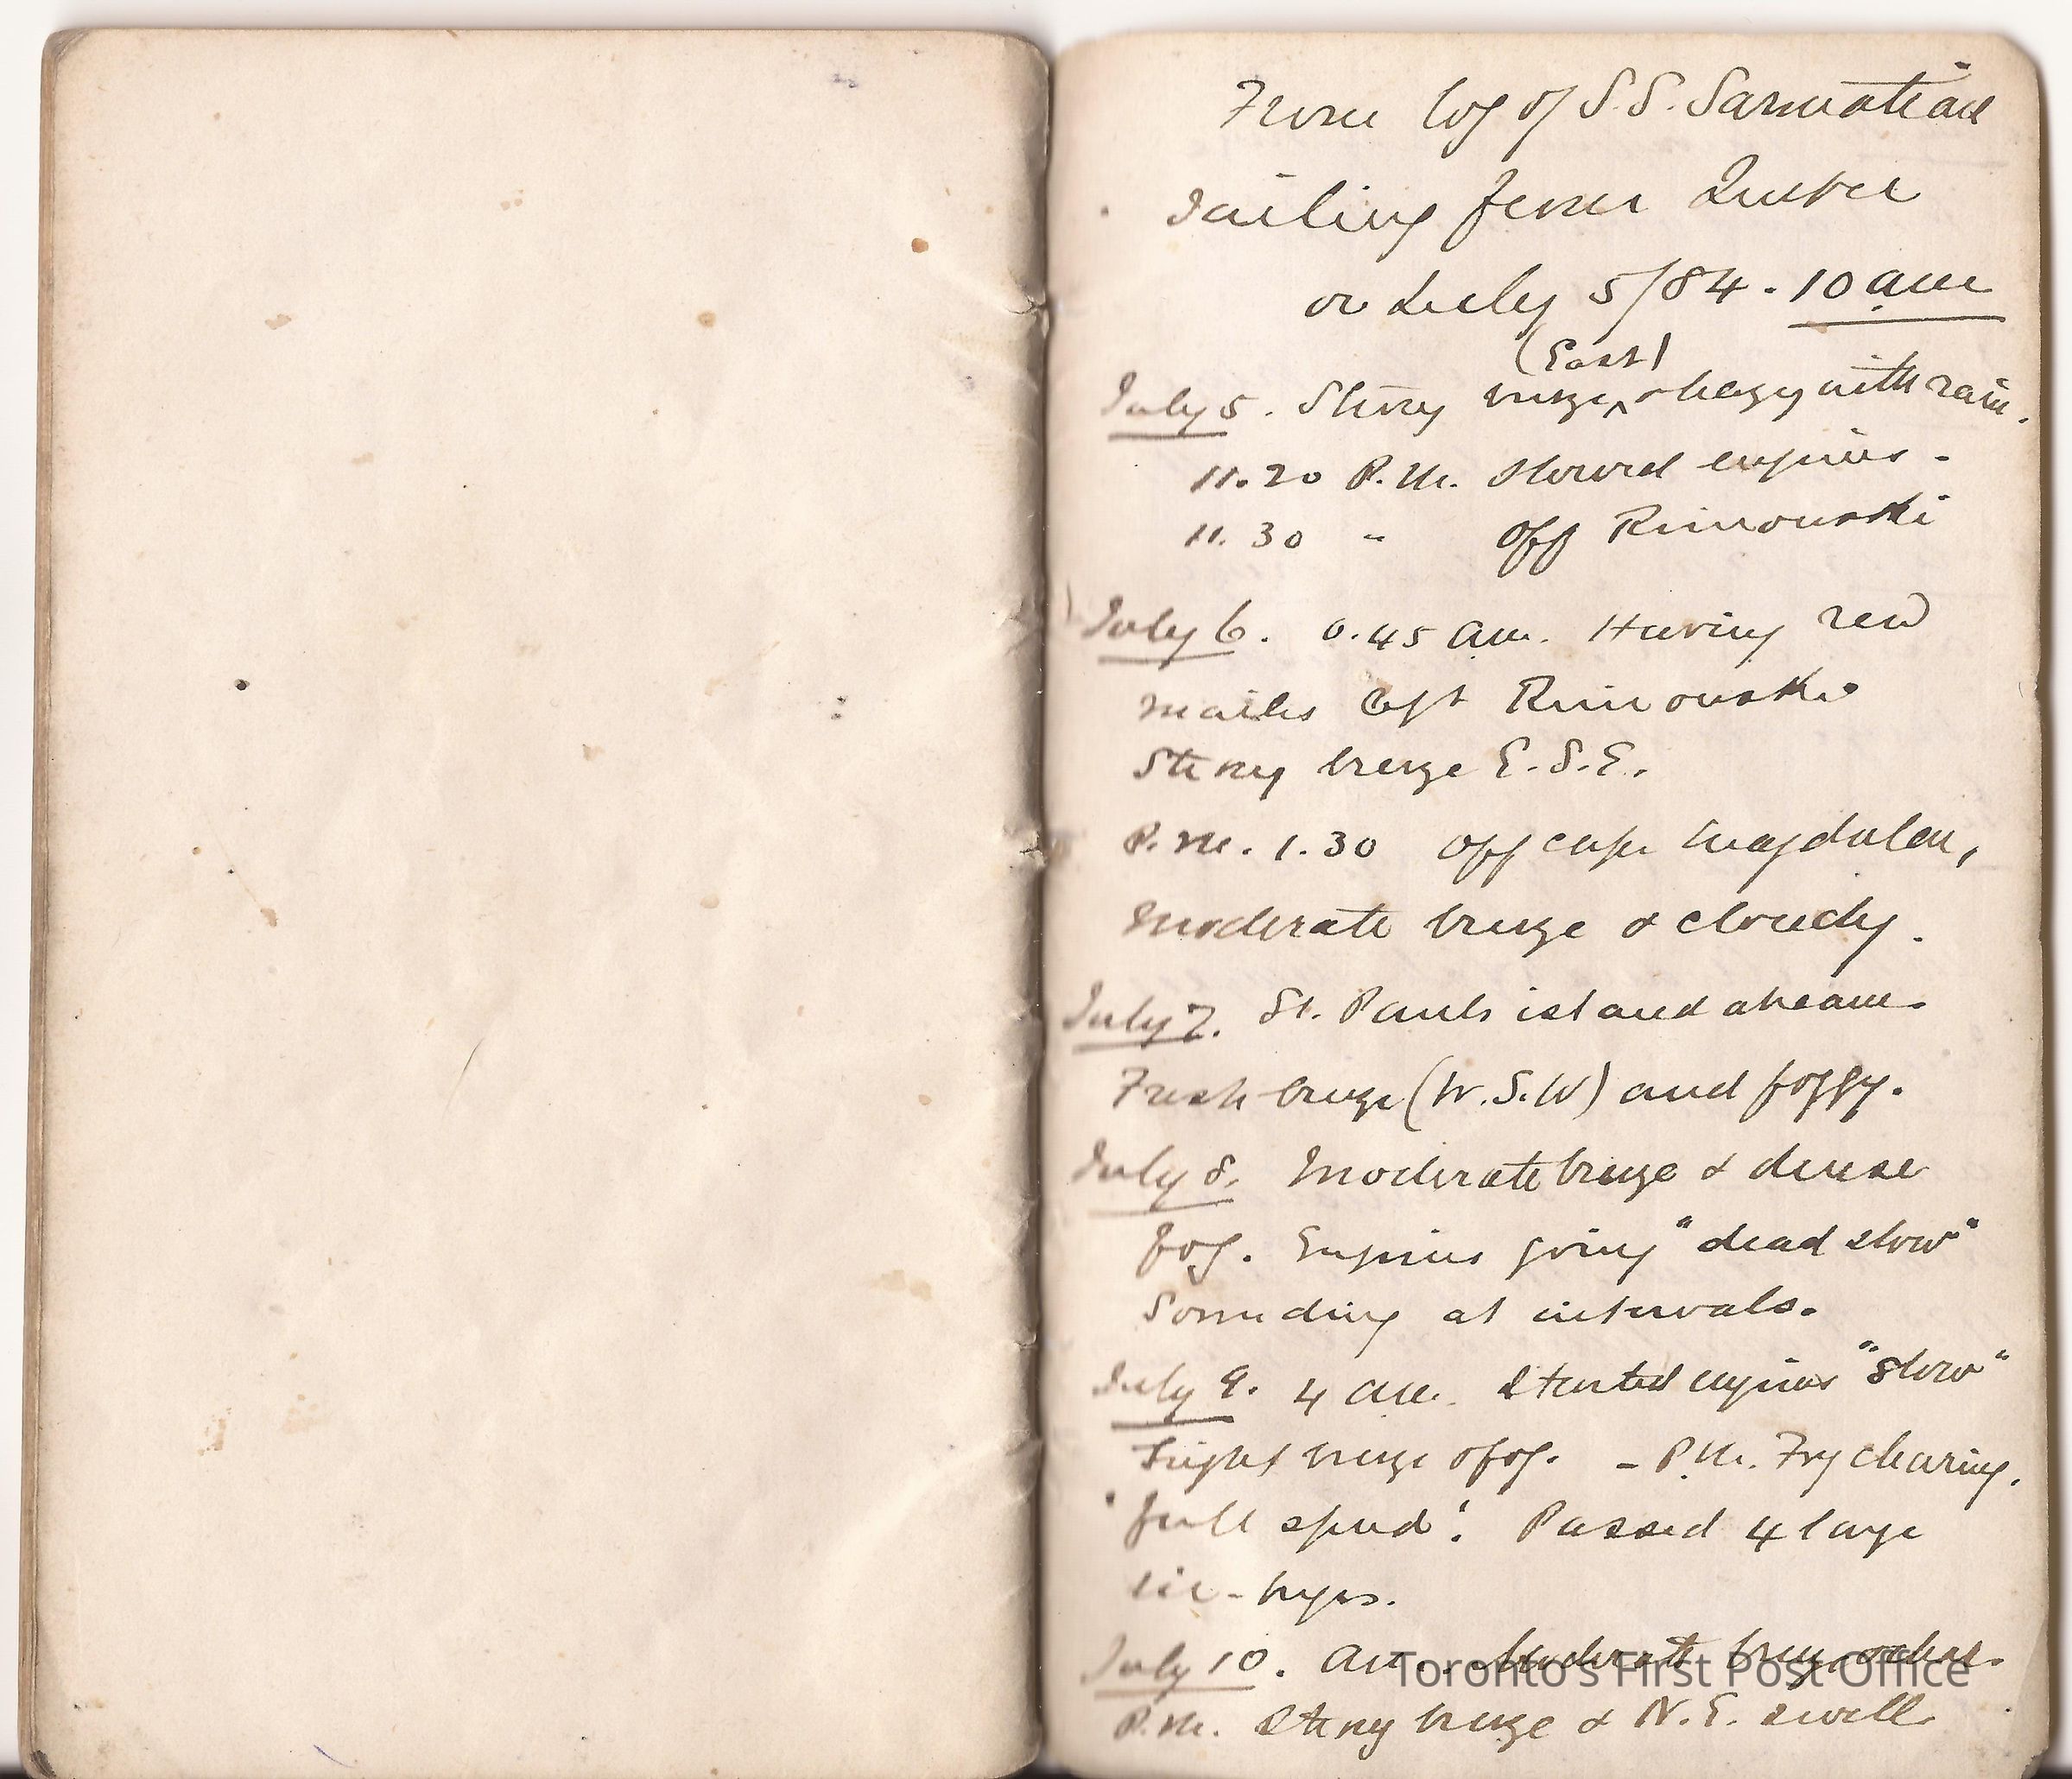 From log of S.S. Sarmatian
Sailing from Quebec
on July 5/84. 10 am
(East)
July 5. Strong breeze ^ & hazy with rain.
11.20 P.M. slowed engines.
11.30 " Off Rimouski
July 6. 0.45 am. Having recd
mails left Rimouski
Strong breeze E.S.E.
P.M. 1.30 Off cape Magdalen,
Moderate breeze & cloudy.
July 7. St. Pauls island abeam.
Fresh breeze (W.S.W) and foggy.
July 8. Moderate breeze & dense
fog. Engines going "dead slow"
Sounding at intervals.
July 9. 4 am. Started engines "slow"
Light breeze & fog. - P.M. Fog clearing.
"full speed". Passed 4 large
ice-bergs.
July 10. Am. Moderate breeze & clear.
P.M. Strong breeze & N.E. swell
Toronto's First Post Office